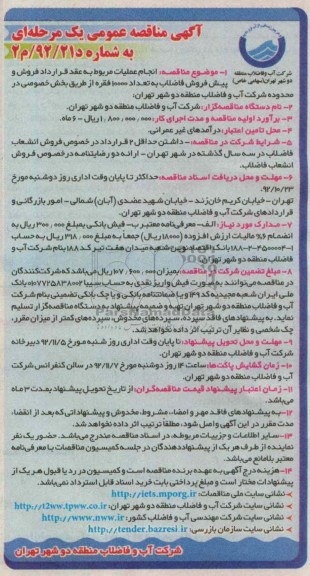 آگهی مناقصه عمومی یک مرحله‌ای
به شماره د۹۲/۲۱/م۲
شرکت آب و فاضلاب منطقه
دو شهر تهران (سهامی خاص)
۱- موضوع مناقصه: انجام عملیات مربوط به عقد قرارداد فروش و
پیش فروش فاضلاب به تعداد ۱۰۰۰۰ فقره از طریق بخش خصوصی در
محدوده شرکت آب و فاضلاب منطقه دو شهر تهران.
۲- نام دستگاه مناقصه‌گزار: شرکت آب و فاضلاب منطقه دو شهر تهران.
۳- برآورد اولیه مناقصه و مدت اجرای کار: ۱,۸۰۰,۰۰۰,۰۰۰ ریال - ۶ ماه.
۴- محل تامین اعتبار: درآمدهای غیر عمرانی.
۵- شرایط شرکت در مناقصه: - داشتن حداقل ۲ قرارداد در خصوص فروش انشعاب
فاضلاب در سه سال گذشته در شهر تهران - ارائه دو رضایتنامه در خصوص فروش
انشعاب فاضلاب.
۶- مهلت و محل دریافت اسناد مناقصه: حداکثر تا پایان وقت اداری روز دوشنبه مورخ
۹۲/۱۰/۲۳
تهران - خیابان کریم خان زند - خیابان شهید عضدی (آبان) شمالی - امور بازرگانی و
قراردادهای شرکت آب و فاضلاب منطقه دو شهر تهران.
۷- مدارک مورد نیاز: الف- معرفی‌نامه معتبر ب- فیش بانکی بمبلغ ۳۰۰,۰۰۰ ریال به
انضمام ۶٪ مالیات ارزش افزوده (۱۸۰۰۰ ریال) جمعا به مبلغ ۳۱۸,۰۰۰ ریال به حساب
بنام شرکت آب و
فاضلاب منطقه دو شهر تهران.
۸- مبلغ تضمین شرکت در مناقصه: بمیزان ۱۰۷,۶۰۰,۰۰۰ ریال می‌باشد که شرکت‌کنندگان
در مناقصه می‌توانند به صورت فیش واریز نقدی به حساب سیبا ۰۱۰۷۷۲۵۸۳۸۰۰۲ بانک
ملی ایران شعبه مجیدیه کد ۱۴۳ و یا ضمانتنامه بانکی و یا چک بانکی تضمینی بنام شرکت
آب و فاضلاب منطقه دو شهر تهران تهیه و ضمیمه پیشنهاد به دستگاه مناقصه‌گزار تسلیم
نماید. به پیشنهادهای فاقد سپرده، سپرده‌های مخدوش، سپرده‌های کمتر از میزان مقرر،
چک شخصی و نظایر آن ترتیب اثر داده نخواهد شد.
۹- مهلت و محل تحویل پیشنهاد: تا پایان وقت اداری روز شنبه مورخ ۹۲/۱۱/۵ دبیرخانه
شرکت آب و فاضلاب منطقه دو شهر تهران.
۱۰- زمان گشایش پاکت‌ها: ساعت ۱۴ روز دوشنبه مورخ ۹۲/۱۱/۷ در سالن کنفرانس شرکت
آب و فاضلاب منطقه دو شهر تهران.
۱۱- زمان اعتبار پیشنهاد قیمت مناقصه‌گران: از تاریخ تحویل پیشنهاد بمدت ۳ ماه
می‌باشد.
۱۲- به پیشنهادهای فاقد مهر و امضا، مشروط، مخدوش و پیشنهاداتی که بعد از انقضا
مدت مقرر در این آگهی واصل شود، مطلقا ترتیب اثر داده نخواهد شد.
۱۳- سایر اطلاعات و جزییات مربوطه، در اسناد مناقصه مندرج می‌باشد. حضور یک نفر
نماینده از طرف هر یک از پیشنهاد دهندگان در جلسه کمیسیون مناقصات با معرفی‌نامه
معتبر بلامانع می‌باشد.
۱۴- هزینه درج آگهی به عهده برنده مناقصه است و کمیسیون در رد یا قبول هر یک از
پیشنهادات مختار است و مبلغ پرداختی بابت خرید اسناد قابل استرداد نمی‌باشد.
نشانی سایت ملی مناقصات: http://iets.mporg.ir
نشانی سایت شرکت آب و فاضلاب منطقه دو شهر تهران: http://t2ww.tpww.co.ir
نشانی سایت شرکت مهندسی آب و فاضلاب کشور: http://www.nww.ir
نشانی سایت سازمان بازرسی: http://tender.bazresi.ir
شرکت آب و فاضلاب منطقه دو شهر تهران